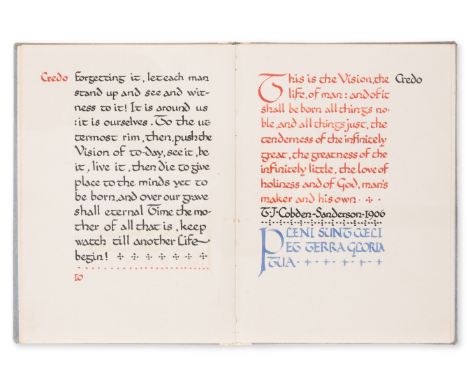 Credo
forgetting it, let each man
stand up and see and wit-
ness to it! It is around us
: it is ourselves. To the ut
termost rim, then, push the
Vision of to-day, see it, be
it, live it, then die to give
place to the minds yet to
be born, and over our grave
shall eternal Time the mo-
ther of all that is, keep
watch till another Life
begin!
10
This is the Vision, the
life, of man: and of it
shall be born all things no-
ble, and all things just, the
tenderness of the infinitely
great, the greatness of the
infinitely little, the love of
holiness and of God, man's
maker and his own
Credo
T·J·Cobden-Sanderson·1906
PLENI SUNT CŒLI
ET TERRA GLORIA
TUA